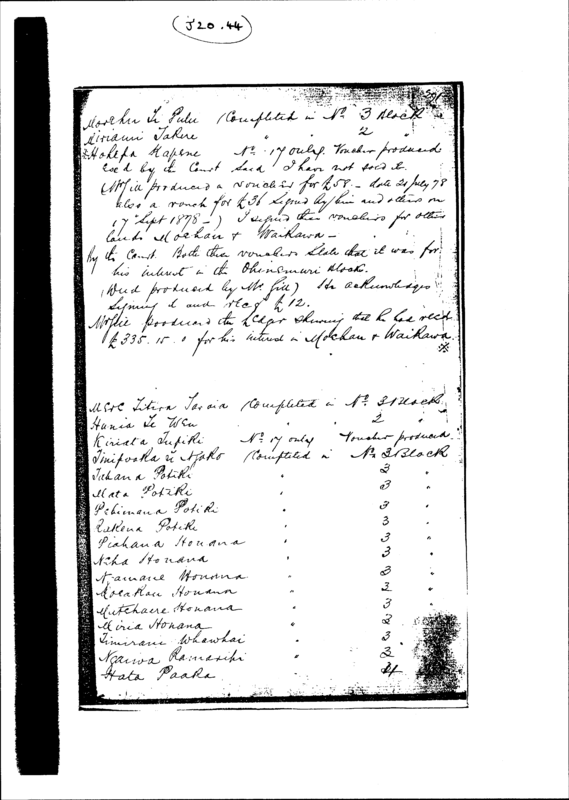 J20.44
Te Pulu (Completed in No. 3 Block
Miriami Takere " " 2 "
Hohepa Hapene No. 17 only. Voucher produced
by the Court Said I have not sold it.
(Mr Gill produced a voucher for £58 – date 20 July 78
also a vouch for £36 signed by him and others on
17 Sept 1878 –) I signed these vouchers for other
lands Moehau & Waikawa –
By the Court Both these vouchers state that it was for
his interest in the Ohinemuri Blocks.
(Deed produced by Mr Gill) He acknowledges
signing it and rec'g £12.
Mr Gill produced the Ledger showing that he has rec'd
£335.15.0 for his interest in Moehau & Waikawa.
Mere Titera Taraia (Completed in No. 3 Block
Hunia Te Weu " 2 "
Kiriata Tupiki No. 17 only Voucher produced.
Te Ngoko (Completed in No. 3 Block
Potiki " 3 "
Mata Potiki " 3 "
Pehimana Potiki " 3 "
Potiki " 3 "
Piahana Honana " 3 "
Neha Honana " 3 "
Honana " 3 "
Honana " 3 "
Honana " 3 "
Miria Honana " 3
Timirani Whawhai " 3
Ngaiwa " 3
Hata Paaka 4